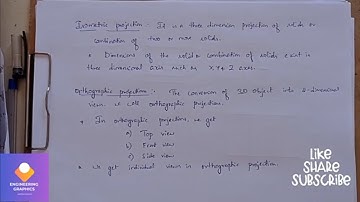 Isometric projection :- It is a three dimension projection of solids or
combination of two or more solids.
* Dimensions of the solid or combination of solids exist in
three dimensional axis such as X Y & Z axes.
Orthographic projections :- The conversion of 3D object into 2-dimensional
view we call orthographic projections.
* In orthographic projections, we get
a) Top view
b) Front view
c) Side view
* We get individual views in orthographic projection.
ENGINEERING
GRAPHICS
LIKE
SHARE
SUBSCRIBE